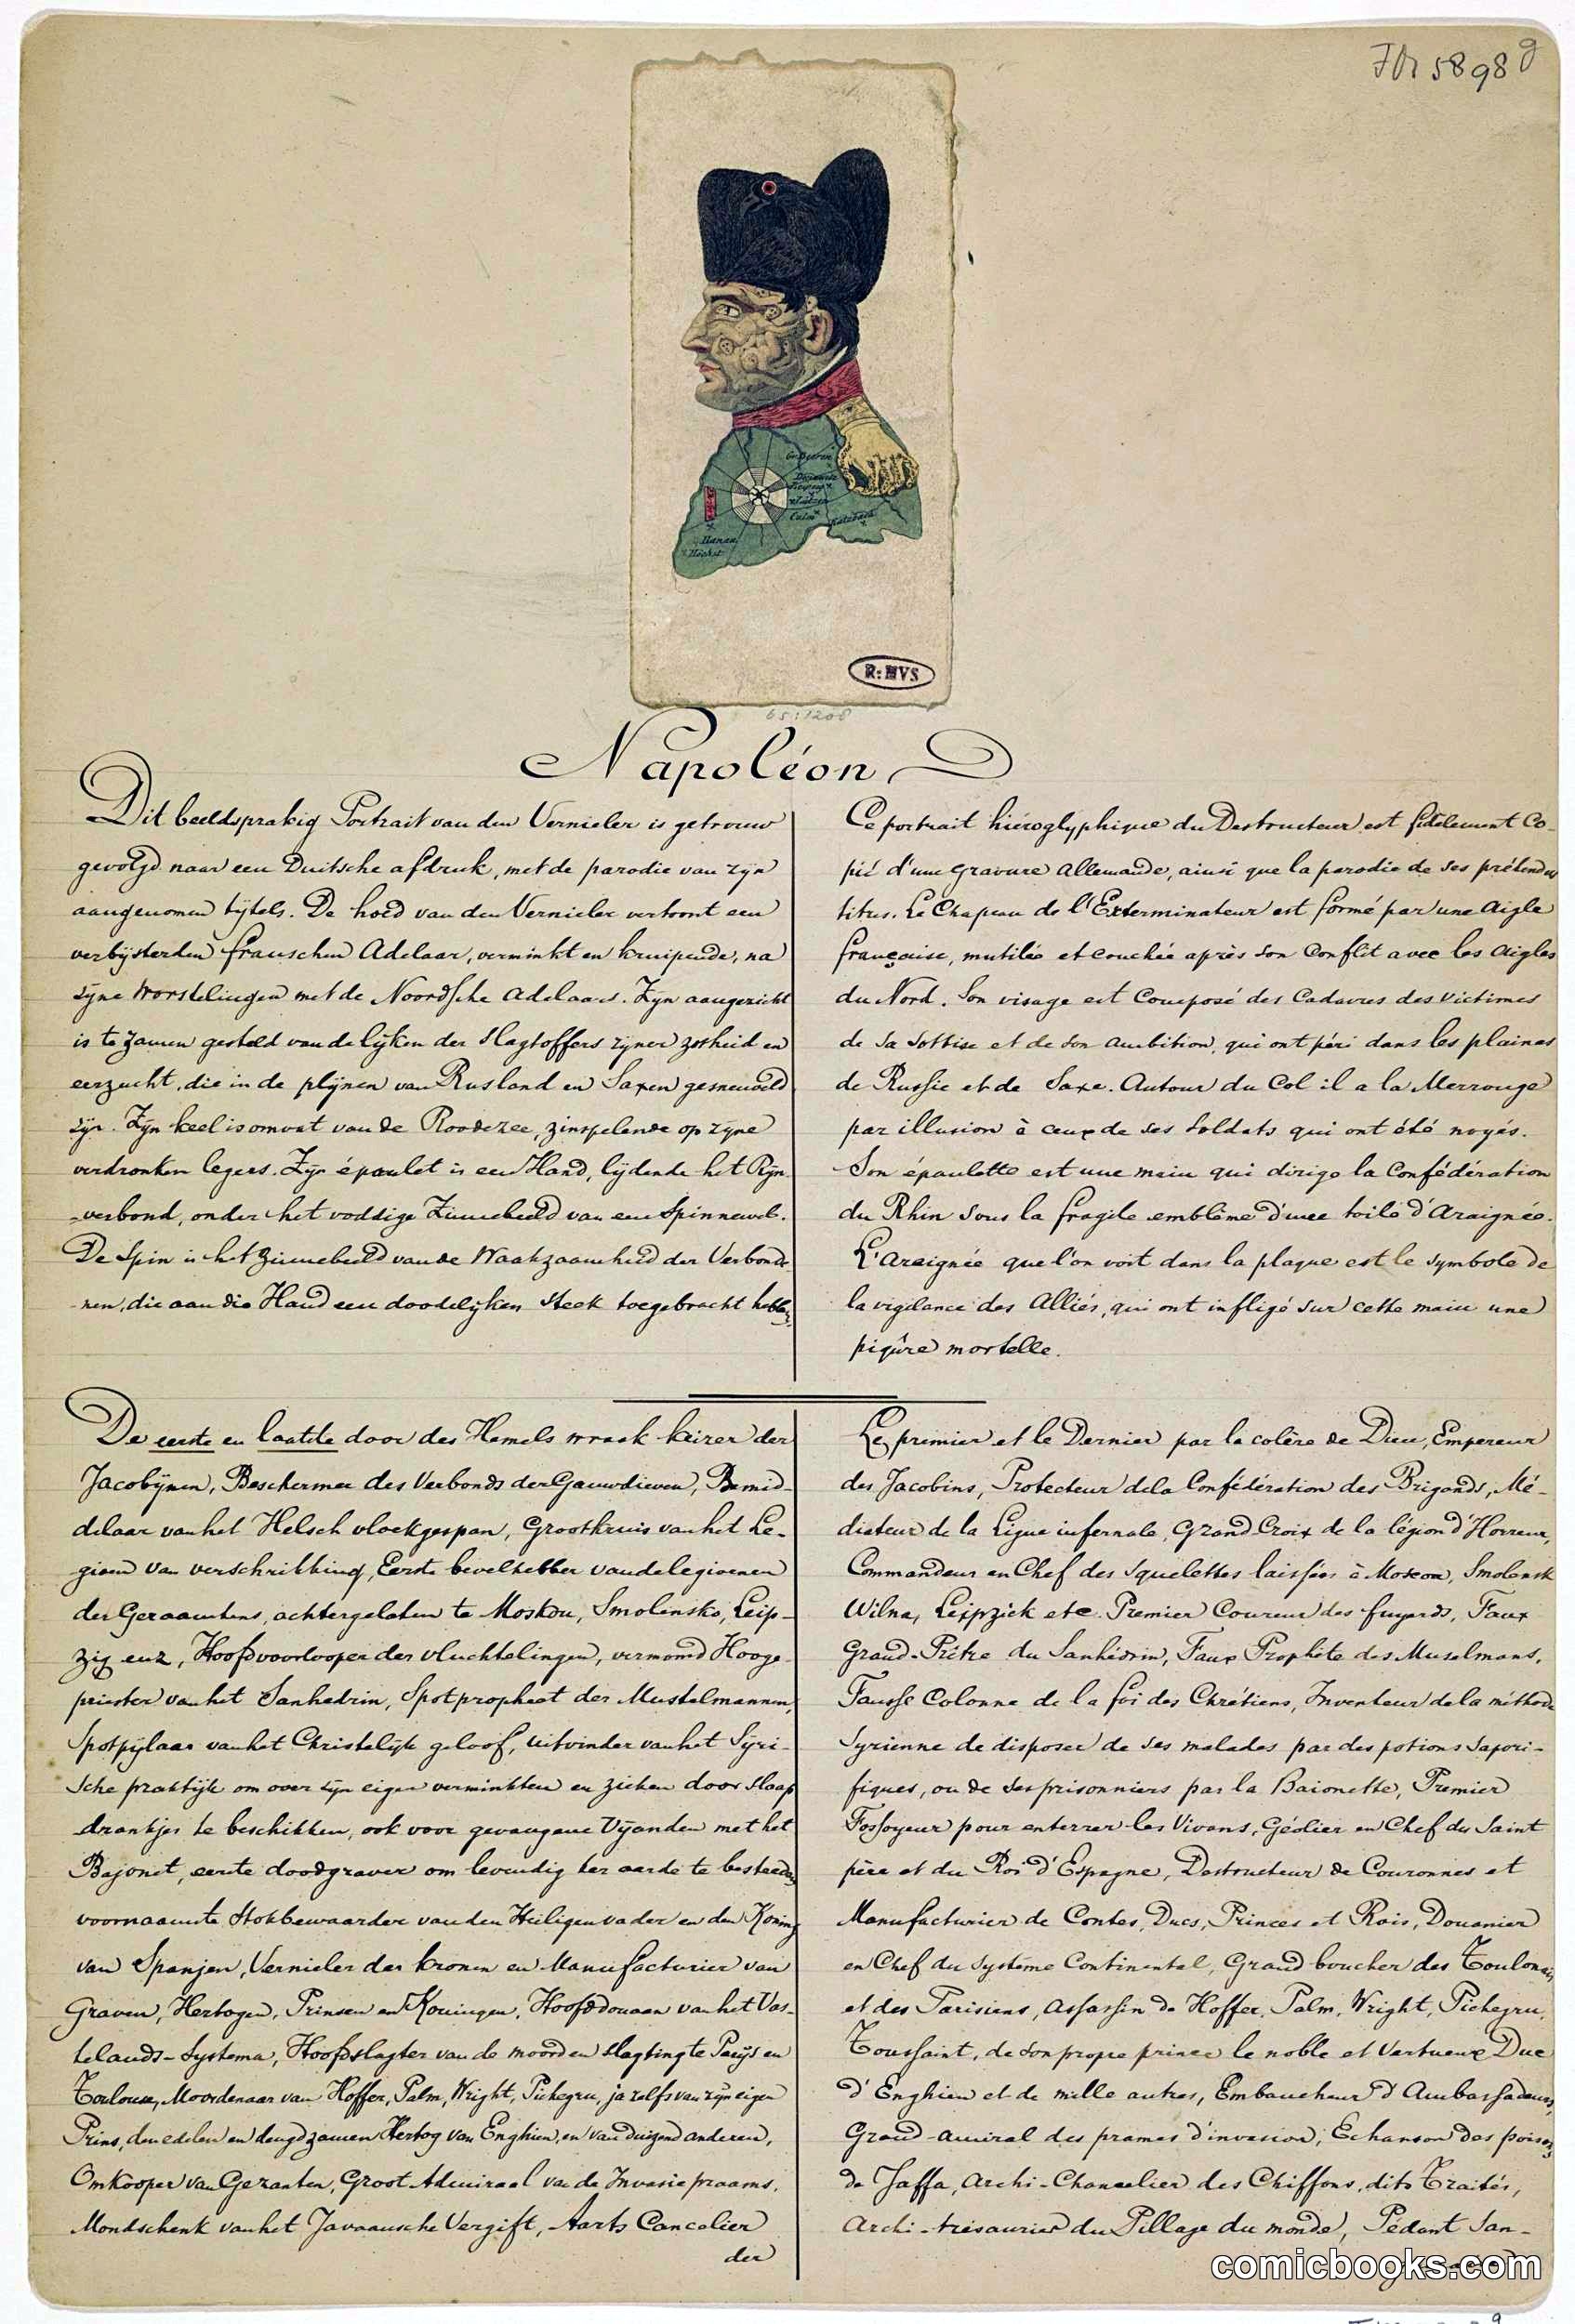 FM 5898 g
Gr. Beeren
Dennewitz
Leipzig
Lützen
Culm
Katzbach
Hanau
Höchst
R: MVS
65:1208
Napoléon
Dit beeldsprakig Portrait van den Vernieler is getrouw
gevolgd naar een Duitsche afdruk, met de parodie van zÿn
aangenomen tÿtels. De hoed van den Vernieler vertoont een
verbÿsterden franschen Adelaar, verminkt en kruipende, na
zÿne worstelingen met de Noordsche adelaars. Zÿn aangezicht
is te zamen gesteld van de lÿken der slagtoffers zÿner zotheid en
eerzucht, die in de plÿnen van Rusland en Saxen gesneuveld
zÿn. Zÿn keel is omvat van de Roodezee, zinspelende op zÿne
verdronken legers. Zÿn épaulet is een Hand, lÿdende het Rÿn-
-verbond, onder het voddige Zinnebeeld van een Spinneweb.
De Spin is het Zinnebeeld van de Waakzaamheid der Verbonde-
-nen, die aan die Hand een doodelÿken steek toegebracht hebben.
De eerste en laatste door des Hemels wraak keizer der
Jacobÿnen, Beschermer des Verbonds der Gauwdieven, Bemid-
delaar van het Helsch vloekgespan, Grootkruis van het Le-
gioen van verschrikking, Eerste bevelhebber van de legioenen
der Geraamtens, achtergelaten te Moskou, Smolensko, Leip-
zig enz, Hoofdvoorlooper der vluchtelingen, vermomd Hooge-
priester van het Sanhedrin, Spotpropheet der Muselmannen,
Spotpÿlaar van het Christelÿk geloof, uitvinder van het Syri-
sche praktÿk om over zÿn eigen verminkten en zieken door slaap
drankjes te beschikken, ook voor gevangene Vÿanden met het
Bajonet, eerste doodgraver om levendig ter aarde te besteeden,
voornaamste Stokbewaarder van den Heiligen vader en den Koning
van Spanjen, Vernieler der kronen en Manufacturier van
Graven, Hertogen, Prinsen en Koningen, Hoofddouaen van het Vas-
telands-Systema, Hoofdslagter van de moord en slagting te Parÿs en
Toulouse, Moordenaar van Hoffer, Palm, Wright, Pichegru, ja zelfs van zÿn eigen
Prins, den edelen en deugdzamen Hertog van Enghien, en van duizend anderen,
Omkooper van Gezanten, Groot Admiraal van de Invasie praams,
Mondschenk van het Javaansche Vergift, Aarts Cancelier
der
Ce portrait hiéroglyphique du Destructeur est fidèlement Co-
pié d'une gravure allemande, ainsi que la parodie de ses prétendus
titres. Le Chapeau de l'Exterminateur est formé par une Aigle
française, mutilée et couchée après son Conflit avec les Aigles
du Nord. Son visage est Composé des Cadavres des victimes
de sa sottise et de son ambition, qui ont péri dans les plaines
de Russie et de Saxe. Autour du Col il a la Merrouge
par illusion à ceux de ses soldats qui ont été noyés.
Son épaulette est une main qui dirige la Confédération
du Rhin sous la fragile emblême d'une toile d'Araignée.
L'Areignée que l'on voit dans la plaque est le symbole de
la vigilance des Alliés, qui ont infligé sur cette main une
piqûre mortelle.
Le premier et le Dernier par la colère de Dieu, Empereur
des Jacobins, Protecteur de la Confédération des Brigands, Mé-
diateur de la Ligue infernale, Grand Croix de la légion d'Horreur,
Commandeur en Chef des squelettes laissées à Moscou, Smolensk
Wilna, Leipzick etc. Premier Coureur des fuyards, Faux
Grand-Prêtre du Sanhédrin, Faux Prophète des Muselmans,
Fausse Colonne de la foi des Chrétiens, Inventeur de la méthode
Syrienne de disposer de ses malades par des potions sapori-
fiques, ou de ses prisonniers par la Baionette, Premier
Fossoyeur pour enterrer les Vivans, Géolier en Chef du Saint
père et du Roi d'Espagne, Destructeur de Couronnes et
Manufacturier de Contes, Ducs, Princes et Rois, Douanier
en Chef du système Continental, Grand boucher des Toulonais
et des Parisiens, Assassin de Hoffer, Palm, Wright, Pichegru,
Toussaint, de son propre prince le noble et vertueux Duc
d'Enghien et de mille autres, Embaucheur d'Ambassadeurs,
Grand-amiral des prames d'invasion, Echanson des poisons
de Jaffa, Archi-Chancelier des Chiffons, dits Traités,
Archi-trésaurier du Pillage du monde, Pédant San-
comicbooks.com